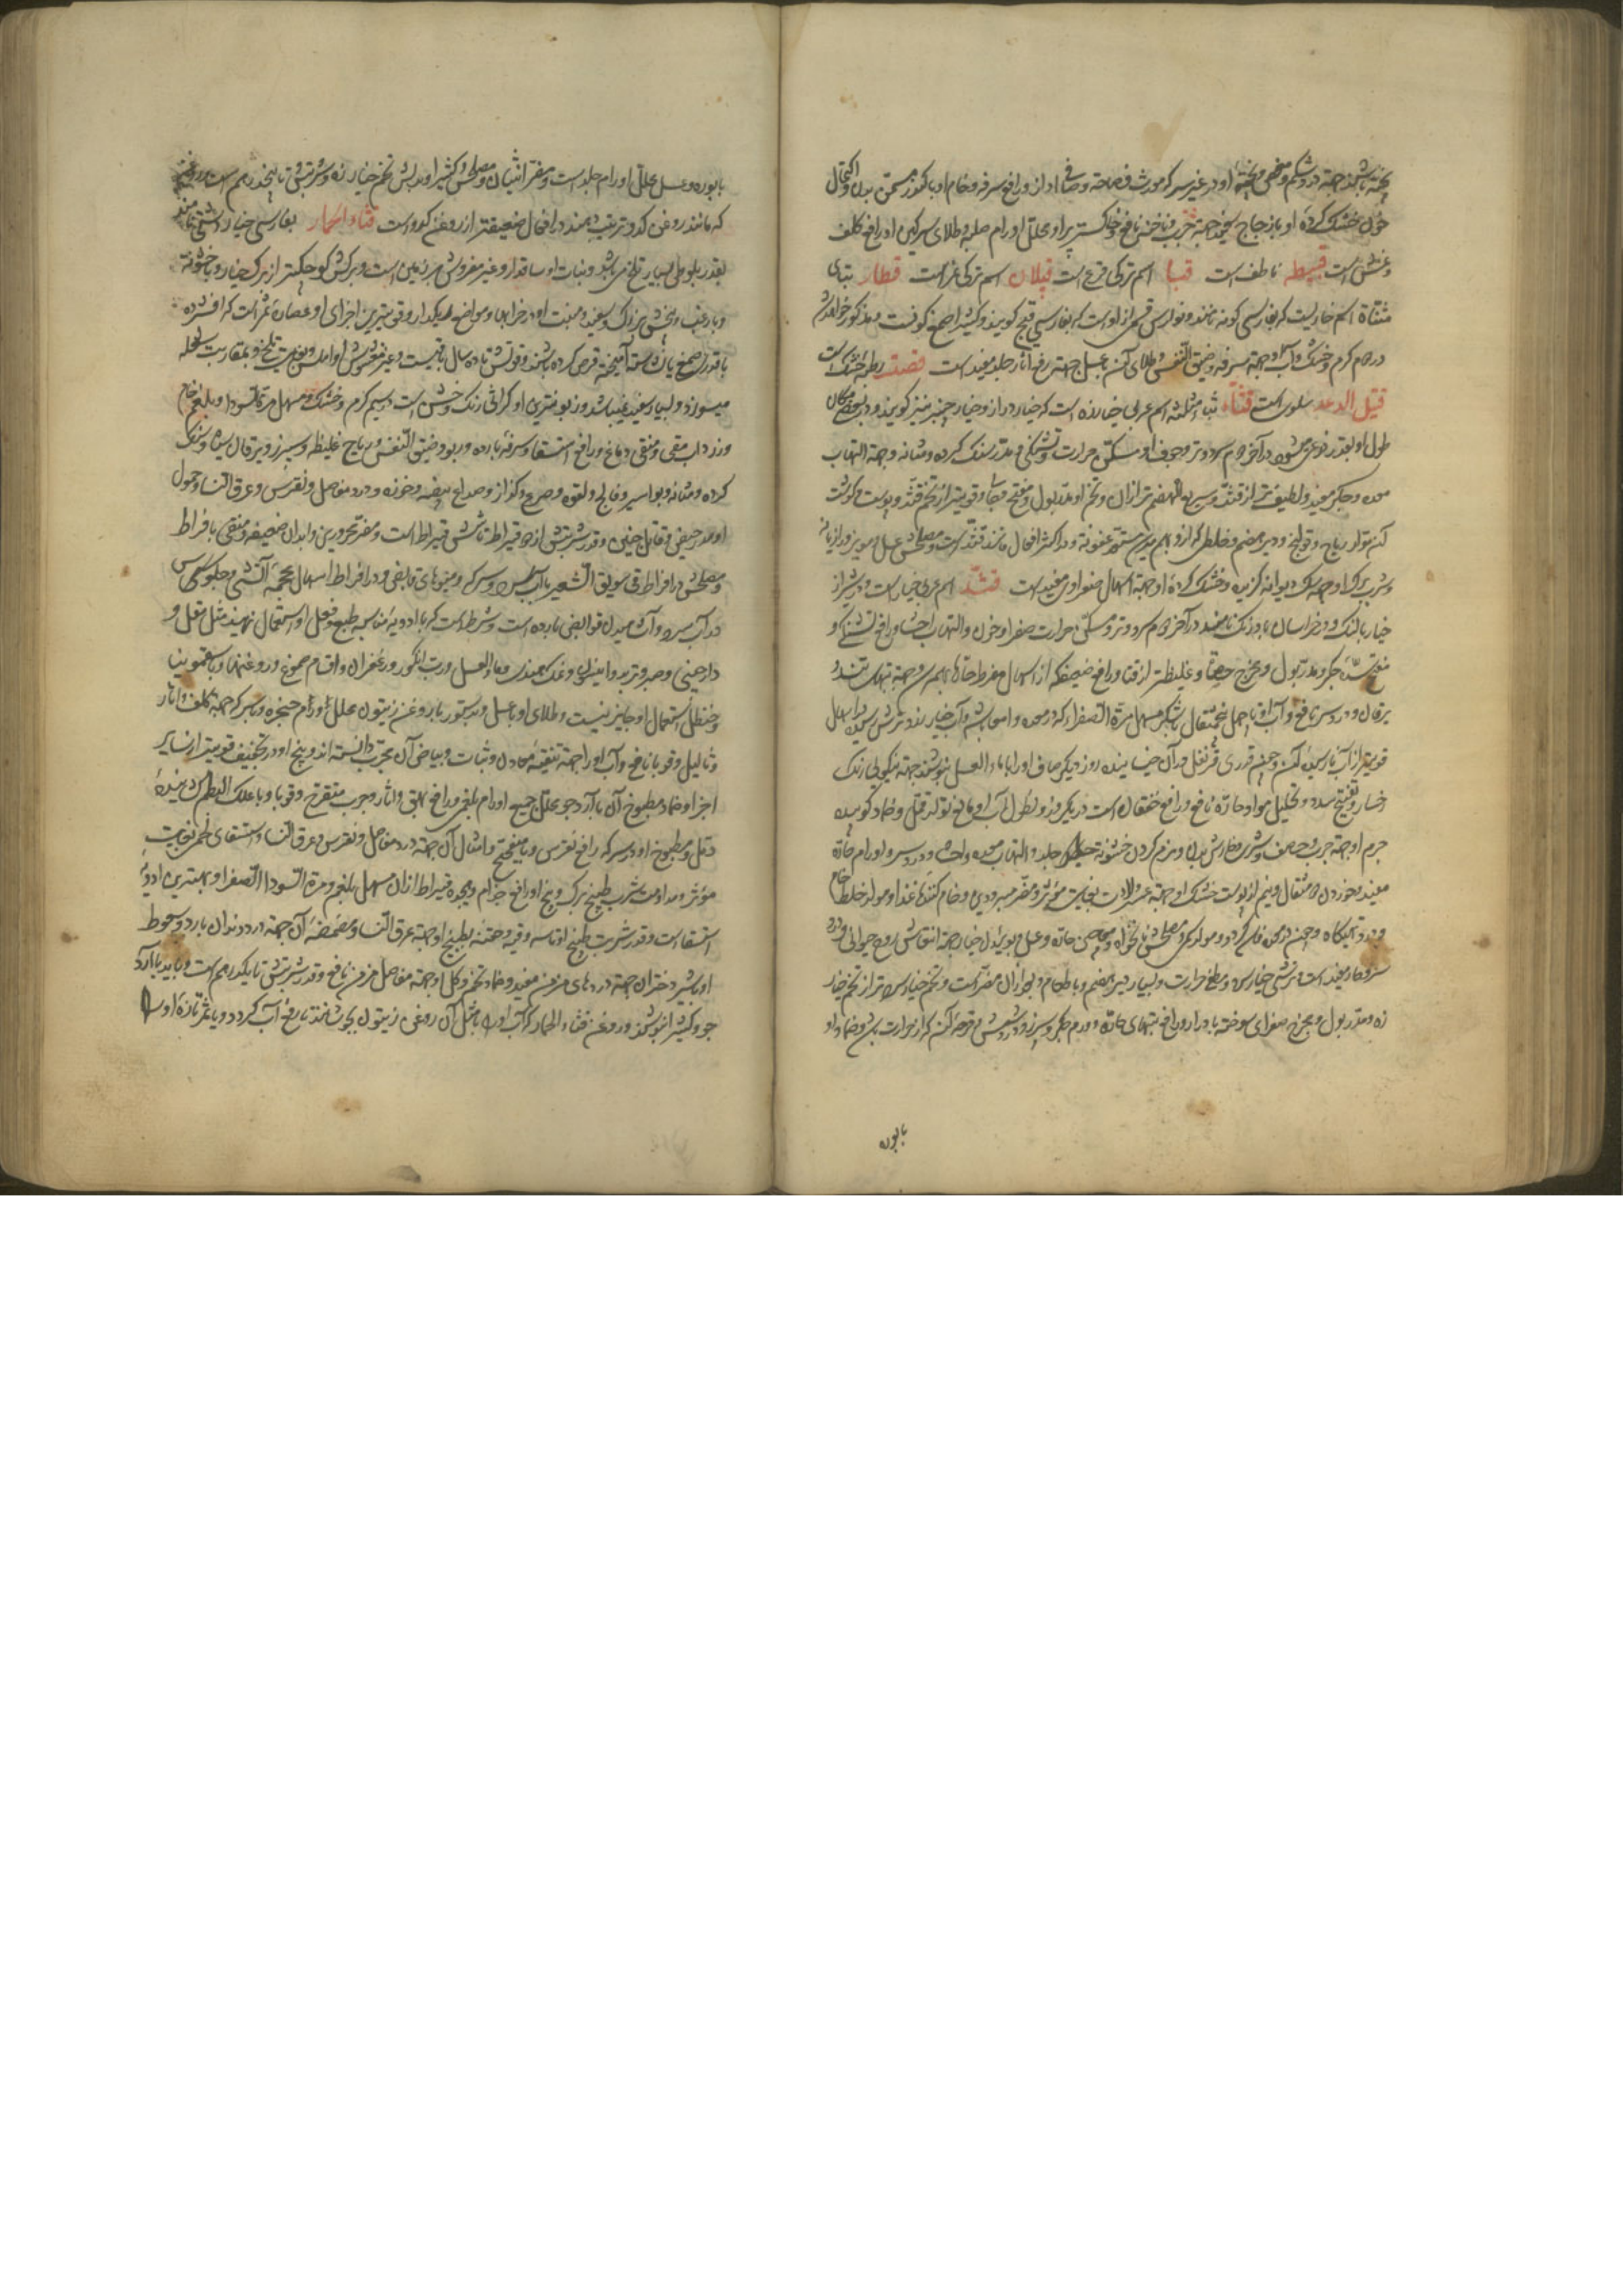 پخته باشند جهة درد شکم و مغص و پختهٔ او در غیر سرکه مورث فصاحة و صافی آواز و رافع سرفه و خام او با کمون مسمن بدن و اکتحال
خون خشک کردهٔ او با زجاج جهة جرب و ناخنه نافع و خاکستر پر او محلل اورام صلبه و طلای سرکین او رافع کلف
و نمش است قبیط ناطف است قبا اسم ترکی قرع است قپلان اسم ترکی نمر است قتار بتای
مثناة اسم خاریست که بفارسی کون نامند و نوارس قسمی از او است که بفارسی قیچ کویند و کتیرا صمغ کونست و مذکور خواهد شد
در دوم کرم و خشک و آب او جهة سرفه و ضیق النفس و طلای آن با عسل جهة رفع آثار جلد مفید است قت رطبه خشک است
قتیل الرعد سلوی است قثاء بثاء مثلثه اسم عربی خیارزه است که خیار دراز و خیار چنبر نیز کویند و در بعضی مکان
طول او بقدر ذرعی میشود در آخر دوم سرد و تر و جوف او مسکن حرارت و تشنکی و مدر سنک کرده و مثانه و جهة التهاب
معده و جکر مفید و لطیف تر از قثد و سریع الهضم تر از آن و تخم او مدر بول و مفتح و قویتر از تخم قثد و پوست و کوشت
آن مولد ریاح و قولنج و دیر هضم و خلطی که از او بهم رسد مستعد عفونة و در اکثر افعال مانند قثد است و مصلحش عسل و مویز و رازیانه
و شرب برک او جهة سک دیوانه کزیده و خشک کردهٔ او جهة اسهال صفراوی مفید است قثد اسم عربی خیار است و در شیراز
خیار بالنک و در خراسان بادرنک نامند در آخر دوم سرد و تر و مسکن حرارت صفرا و خون و التهاب احشا و رافع تشنکی و
مفتح سدهٔ جکر و مدر بول و مخرج حصاة و غلیظتر از قثا و رافع ضعفی که از اسهال مفرط حادث بهم رسد و جهة تبهای تند و
یرقان و درد سر نافع و آب او تا چهل و پنج مثقال با شکر مسهل مرة الصفراء که در معده و امعا باشد و آب خیار رند ترش رسیده در اسهال
قویتر از آب نارسیدهٔ آن و چون قدری قرنفل در آن خیسانیده روز دیکر صاف او را با ماء العسل بنوشند جهة نیکویی رنک
رخسار و تفتیح سدد و تحلیل مواد حاره نافع و رافع خفقان است در یک روز و نطول آب او مانع تولد قمل و ضماد کوبیدهٔ
جرم او جهة جرب و حصف و شری و خارش بدن و نرم کردن خشونة جلد و التهاب معده و احشا و درد سر و اورام حاره
مفید و خوردن ده مثقال و نیم از پوست خشک او جهة عسر ولادت بغایت مؤثر و مضر مبرودین و خام کنندهٔ غذا و مولد خلط خام
و درد تهیکاه و چون در معده فاسد کردد مولد سمی و مصلحش نانخواه و معاجین حاره و عسل و بوئیدن خیار جهة انتعاش روح حیوانی و درد
سر حار مفید است و ترشی خیار سرد و مطفی حرارت و بسیار دیر هضم و با طعام و بعد از آن مضر است و تخم خیار سردتر از تخم خیار
زه و مدر بول و مخرج صفرای سوخته با ادرار و رافع تبهای حاده و ورم جکر و سپرز و درد شش و قرحهٔ آن که از حرارت باشد و ضماد او
بابوره
با بوره و عسل محلل اورام جلد است و مضر انثیان و مصلحش کتیرا و بدلش تخم خیارزه و شربتش تا پنجدرهم است و روغن
که مانند روغن کدو ترتیب دهند در افعال ضعیفتر از روغن کدو است قثاء الحمار بفارسی خیار دشتی نامند
بقدر بلوطی و بسیار تلخ می باشد و نبات او ساقدار و غیر مفروش بر زمین است و برکش کوچکتر از برک خیار و با خشونة
و با زغب و بیخش بزرک و سفید و منبت او در خرابها و مواضع ریکدار و قویترین اجزای او عصارهٔ ثمر است که افشرده
با قدری صمغ یا نشاسته آمیخته قرص کرده باشند و قوتش تا ده سال باقیست و غیر مغشوش او املس و بغایت تلخ و بمقاربت شعله
میسوزد و بسیار سفید نمیباشد و زبونترین او کراثی رنک و خشن است در سیم کرم و خشک و مسهل مرة السودا و بلغم خام
و زرداب و مقی و منقی دماغ و رافع استسقا و سرفه بارده و ربو و ضیق النفس و ریاح غلیظه و سپرز و یرقان سیاه و سنک
کرده و مثانه و بواسیر و فالج و لقوه و صرع و کزاز و صداع بیضه و خوذه و درد مفاصل و نقرس و عرق النسا و حمول
او مدر حیض و قاتل جنین و قدر شربتش از دو قیراط تا شش قیراط است و مضر محرورین و ابدان ضعیفه و منقی بافراط
و مصلحش در افراط قی سویق الشعیر با آب سرد و سرکه و میوهای قابض و در افراط اسهال محجمهٔ آتشی و جلوس
در آب سرد و آشامیدن قوابض بارده است و شرط است که با ادویهٔ مناسبه طبع و فعل او استعمال نمایند مثل مقل و
دارچینی و صبر و تربد و انیسون و نمک هندی و ماء العسل و رب انکور و زعفران و اقسام صموغ و روغنها و با سقمونیا
و حنظل استعمال او جایز نیست و طلای او با عسل و بدستور با روغن زیتون محلل اورام حنجره و با سرکه جهة کلف و آثار
و ثآلیل و قوبا نافع و آب او را جهة تنقیه معادن و نبات و بیاض آن مجرب دانسته اند و بیخ او در تجفیف قویتر از سایر
اجزا و ضماد مطبوخ آن با آرد جو محلل جمیع اورام بلغمی و رافع بهق و آثار و جرب متقرح و قوبا و با علک البطم کشایندهٔ
دمل و مطبوخ او در سرکه رافع نقرس و با میفختج و امثال آن جهة درد مفاصل و نقرس و عرق النسا و استسقای لحمی بغایت
مؤثر و مداومت شرب طبیخ برک و بیخ او رافع جذام و هجده قیراط از آن مسهل بلغم و مرة السودا و الصفرا و بهترین ادویهٔ
استسقا است و قدر شربت طبیخ او تا سه وقیه و حقنه بطبیخ او جهة عرق النسا و مضمضهٔ آن جهة درد دندان بارد و سعوط
او با شیر دختران جهة دردهای مزمن مفید و ضماد تخم و کل او جهة مفاصل مزمن نافع و قدر شربتش تا یکدرهم است و باید با آرد
جو و کتیرا بنوشند و روغن قثاء الحمار که آب او را با مثل آن روغن زیتون بجوشانند تا رفع آب کردد و یا ثمر تازهٔ او را